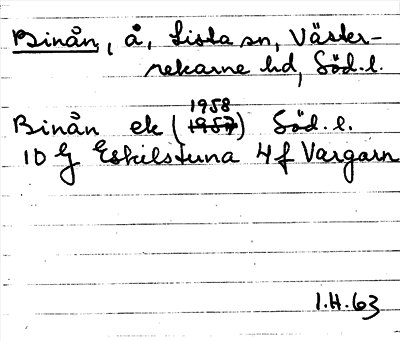 Binån, å, Lista sn, Väster-
rekarne hd, Söd. l.
1958
Binån ek (1957) Söd. l.
10 G Eskilstuna 4 f Vargarn
I.H. 63